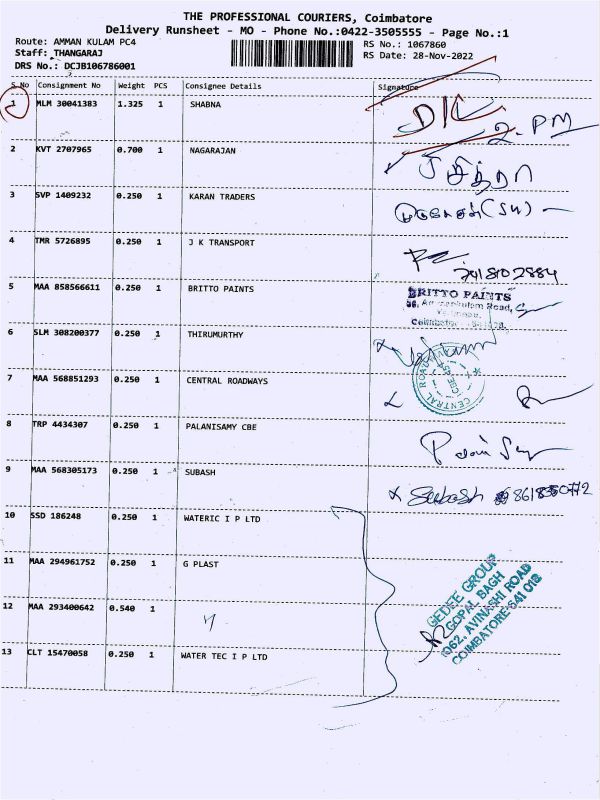 THE PROFESSIONAL COURIERS, Coimbatore
Delivery Runsheet - MO - Phone No.:0422-3505555 - Page No.:1
Route: AMMAN KULAM PC4
RS No.: 1067860
Staff: THANGARAJ
RS Date: 28-Nov-2022
DRS No.: DCJB106786001
S No Consignment No Weight PCS Consignee Details Signature
1 MLM 30041383 1.325 1 SHABNA
2. PM
2 KVT 2707965 0.700 1 NAGARAJAN
சித்ரா
3 SVP 1409232 0.250 1 KARAN TRADERS
4 TMR 5726895 0.250 1 J K TRANSPORT
5 MAA 858566611 0.250 1 BRITTO PAINTS
BRITTO PAINTS
Road,
6 SLM 308200377 0.250 1 THIRUMURTHY
7 MAA 568851293 0.250 1 CENTRAL ROADWAYS
CENTRAL ROADWAYS
8 TRP 4434307 0.250 1 PALANISAMY CBE
9 MAA 568305173 0.250 1 SUBASH
Subash
10 SSD 186248 0.250 1 WATERIC I P LTD
11 MAA 294961752 0.250 1 G PLAST
12 MAA 293400642 0.540 1
GEDEE GROUP
GOPAL BAGH
1062, AVINASHI ROAD
COIMBATORE-641 018
13 CLT 15470058 0.250 1 WATER TEC I P LTD